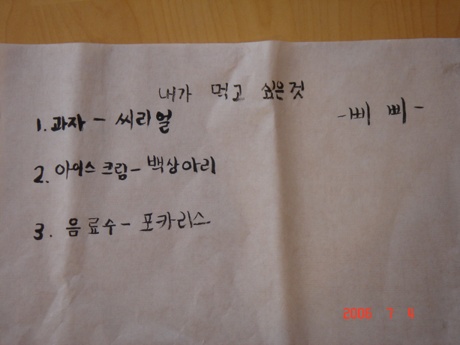 내가 먹고 싶은것
1. 과자 - 씨리얼
- 삐 삐 -
2. 아이스크림 - 백상아리
3. 음료수 - 포카리스